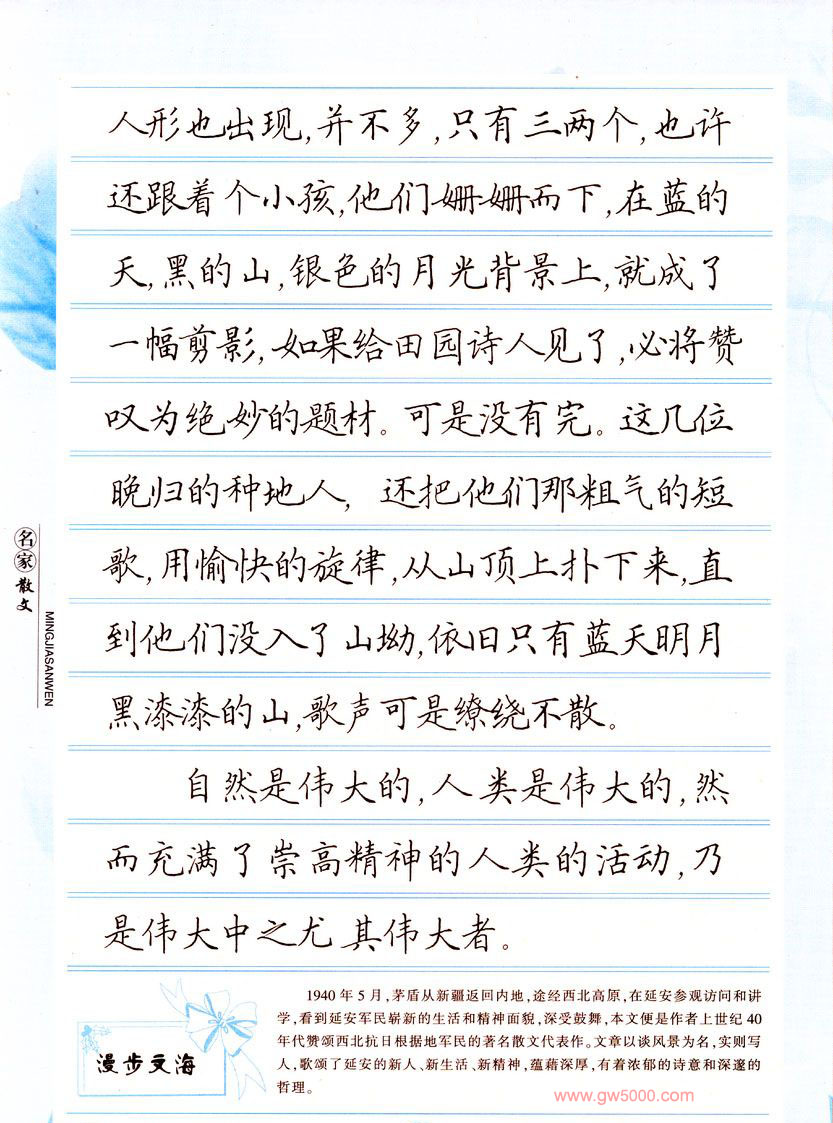 人形也出现,并不多,只有三两个,也许
还跟着个小孩,他们姗姗而下,在蓝的
天,黑的山,银色的月光背景上,就成了
一幅剪影,如果给田园诗人见了,必将赞
叹为绝妙的题材。可是没有完。这几位
晚归的种地人,还把他们那粗气的短
歌,用愉快的旋律,从山顶上扑下来,直
到他们没入了山坳,依旧只有蓝天明月
黑漆漆的山,歌声可是缭绕不散。
自然是伟大的,人类是伟大的,然
而充满了崇高精神的人类的活动,乃
是伟大中之尤其伟大者。
名家散文
MINGJIASANWEN
漫步文海
1940年5月,茅盾从新疆返回内地,途经西北高原,在延安参观访问和讲
学,看到延安军民崭新的生活和精神面貌,深受鼓舞,本文便是作者上世纪40
年代赞颂西北抗日根据地军民的著名散文代表作。文章以谈风景为名,实则写
人,歌颂了延安的新人、新生活、新精神,蕴藉深厚,有着浓郁的诗意和深邃的
哲理。
www.gw5000.com